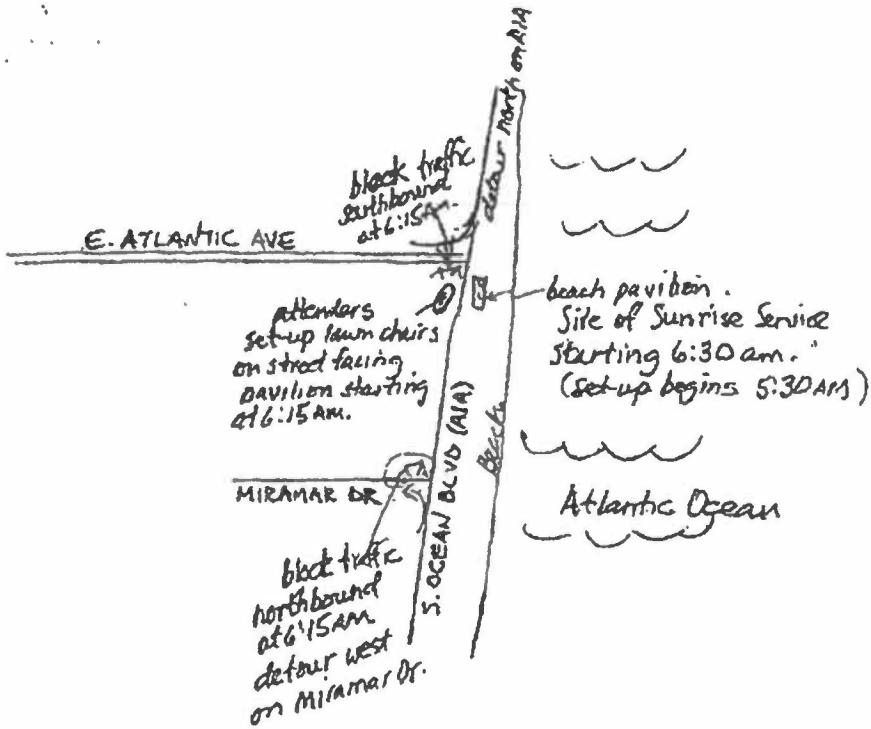 detour north on A1A
block traffic
southbound
at 6:15 AM.
E. ATLANTIC AVE
attenders
set-up lawn chairs
on street facing
pavilion starting
at 6:15 AM.
beach pavilion.
Site of Sunrise Service
starting 6:30 am.
(set-up begins 5:30 AM)
S. OCEAN BLVD (A1A)
Beach
MIRAMAR DR
Atlantic Ocean
block traffic
northbound
at 6:15 AM
detour west
on Miramar Dr.